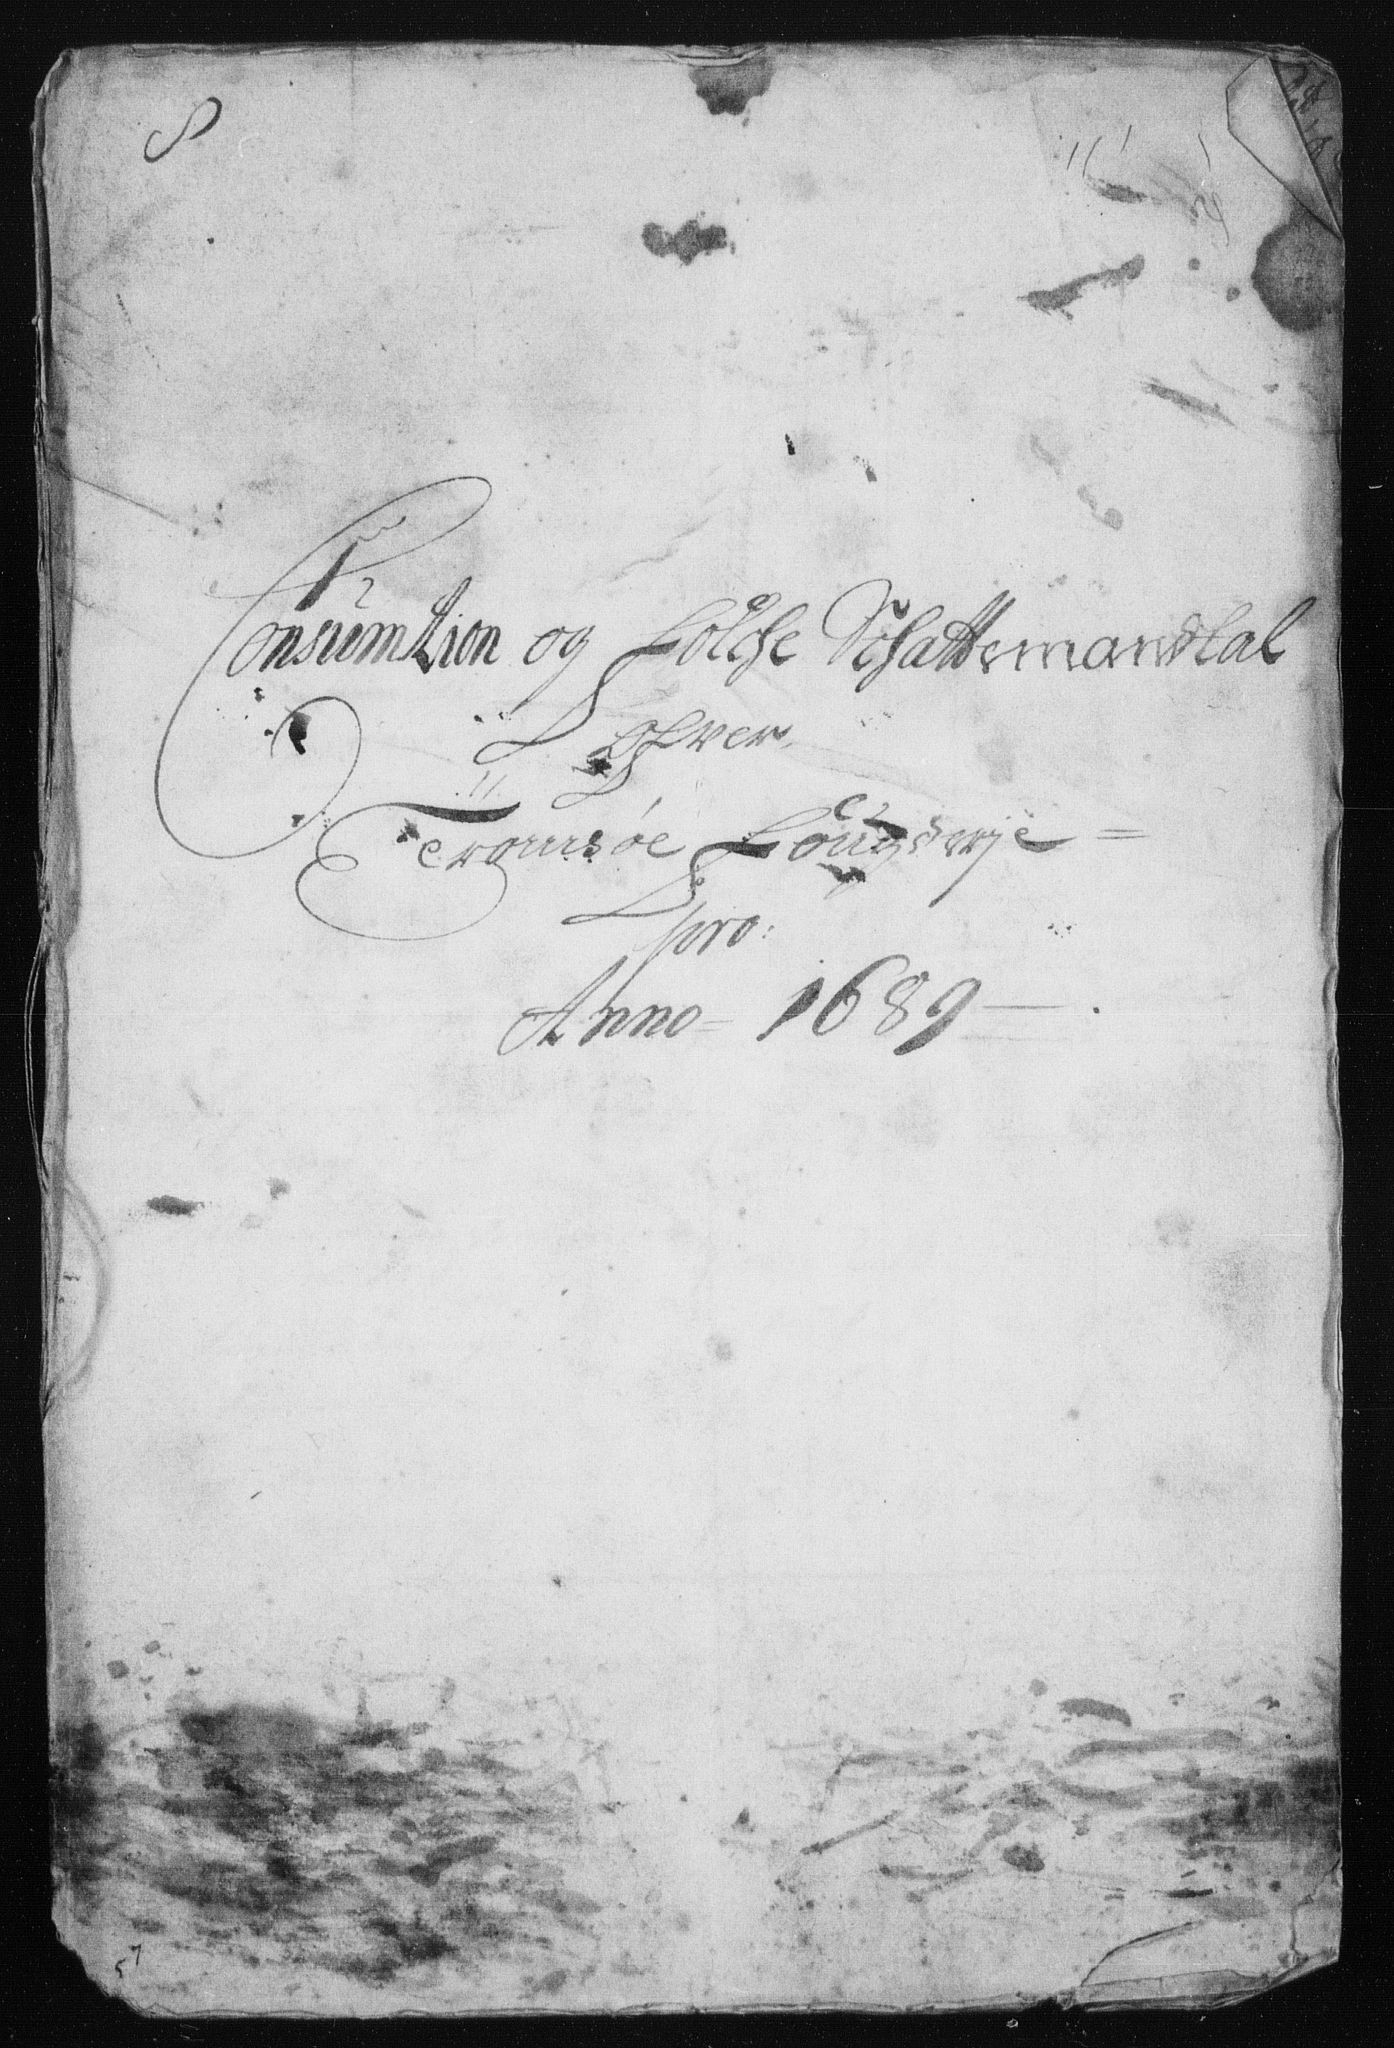 8
Consumtion og Folche Schattemandtal
Ofver
Tromsøe Fougderje =
pro:
Anno = 1689 —.